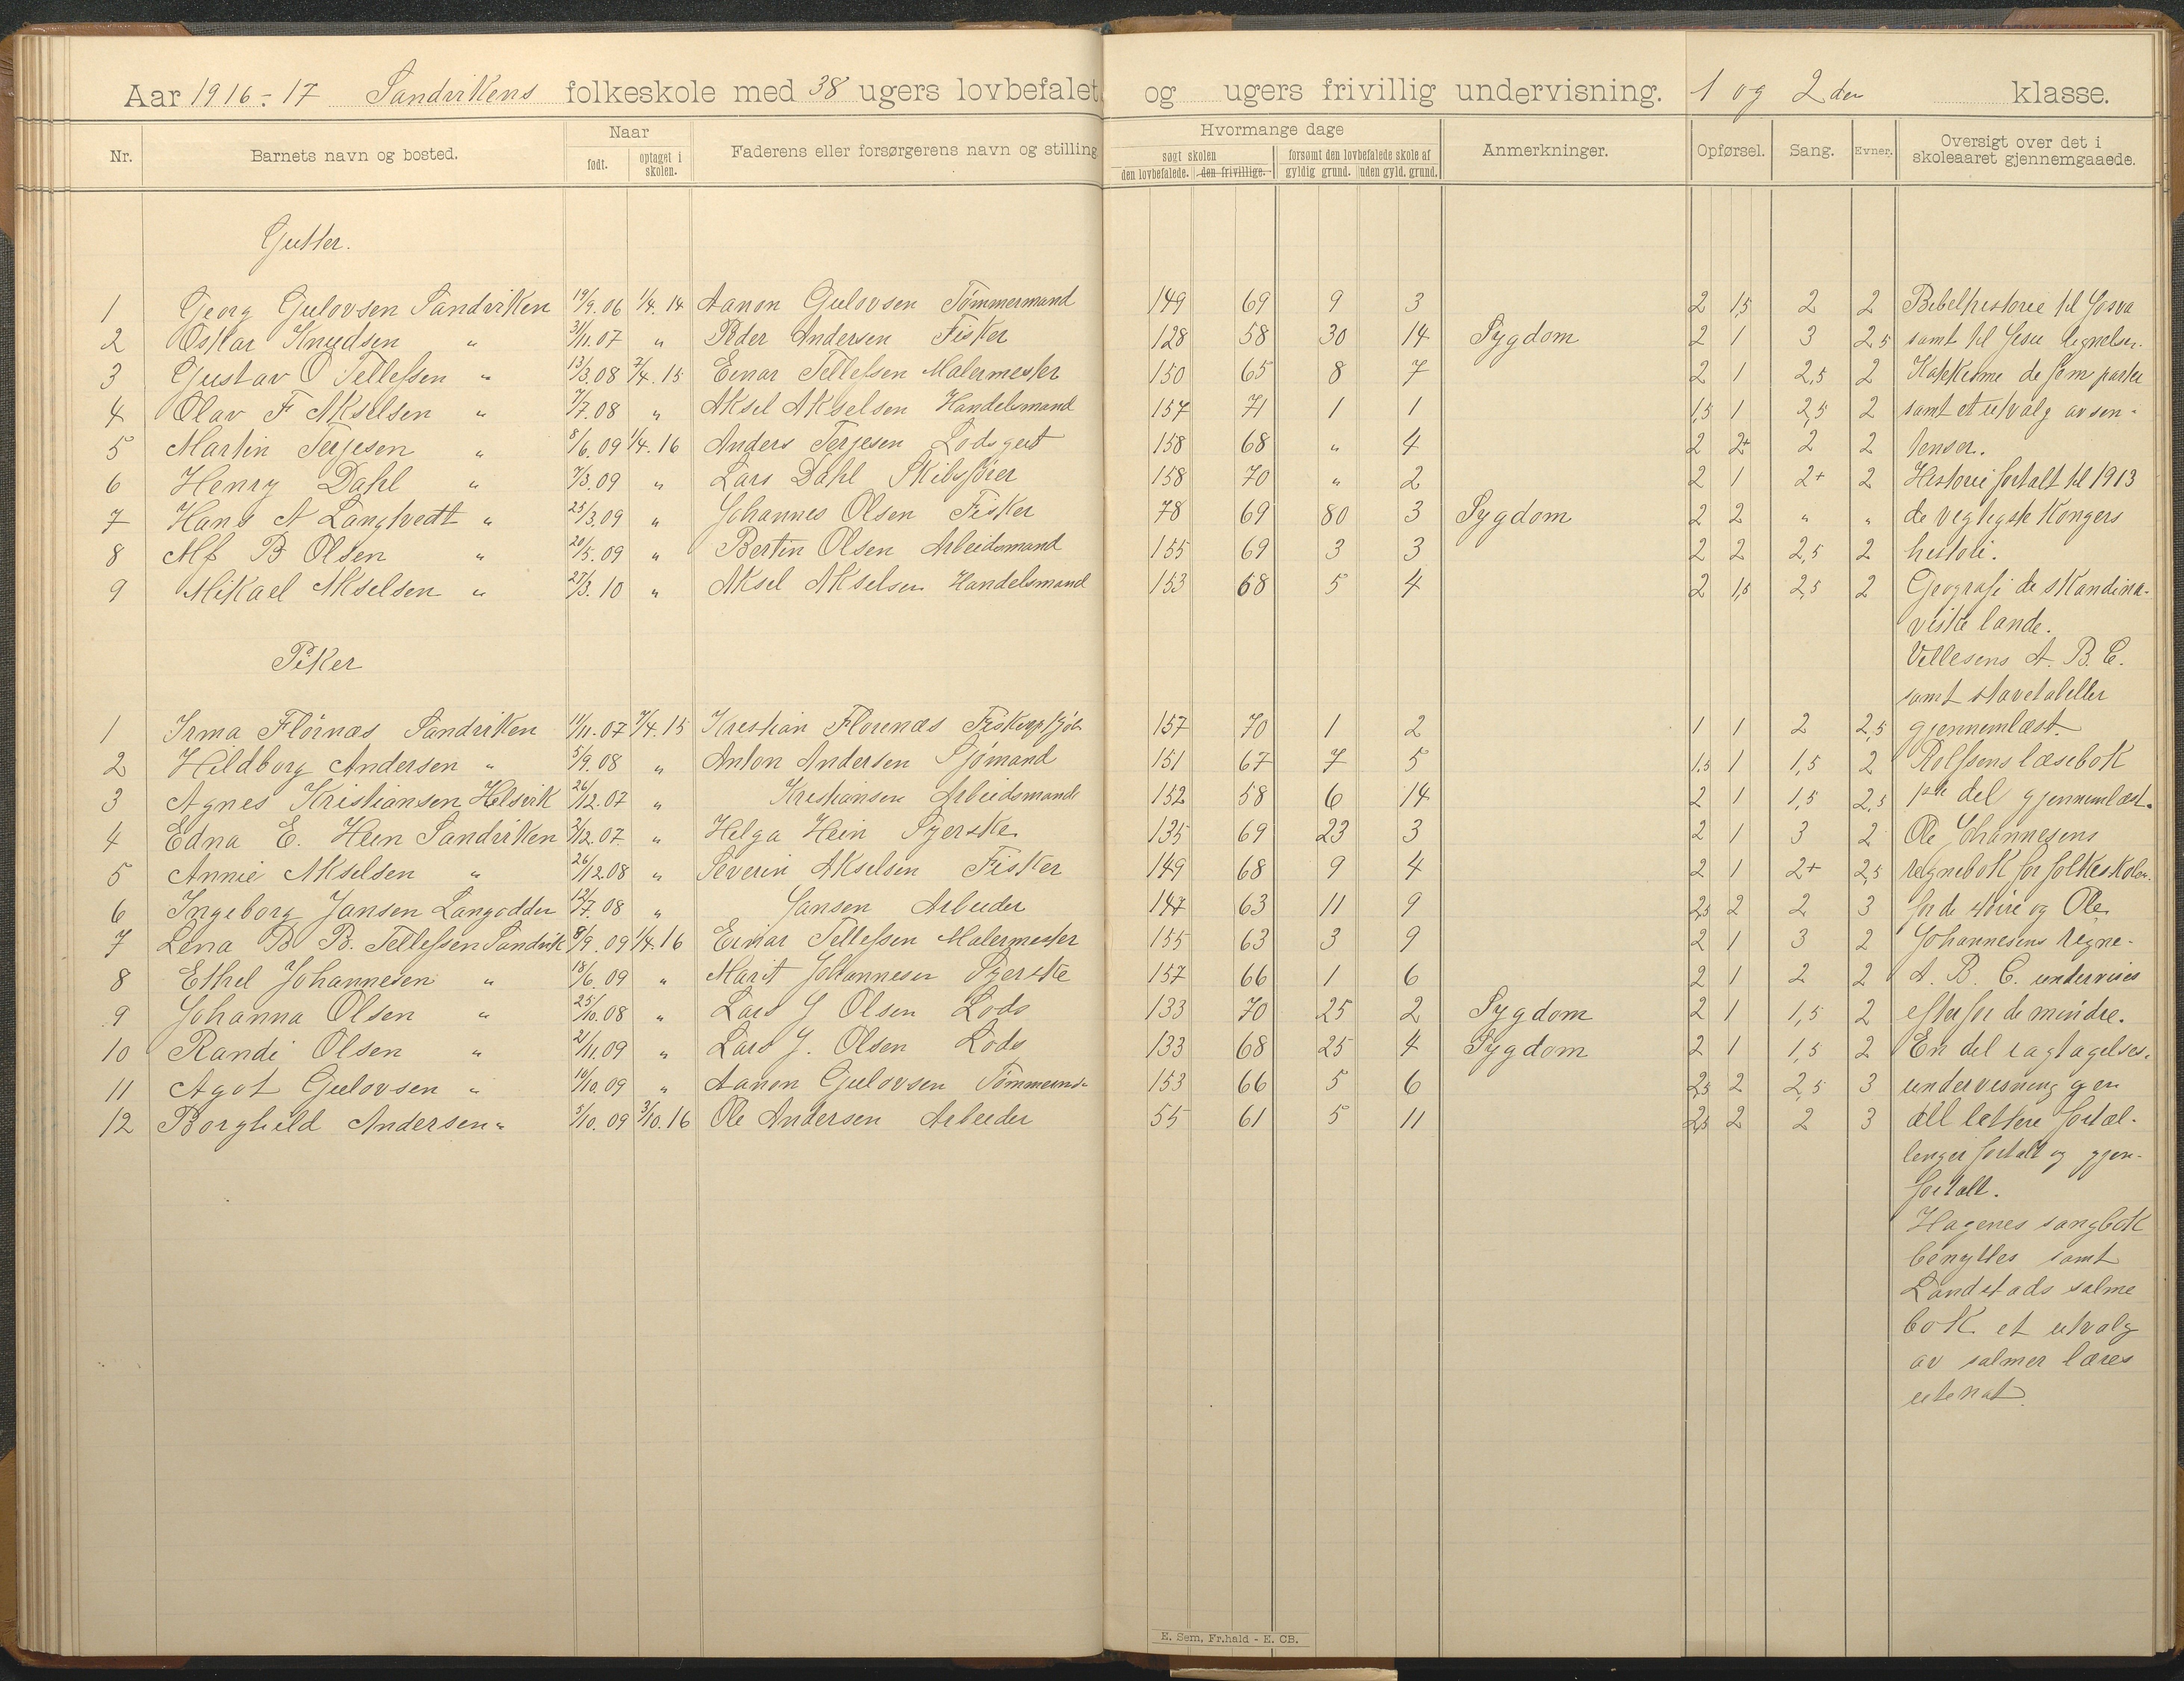 Aar 1916-17 Sandvikens folkeskole med 38 ugers lovbefalet og ugers frivillig undervisning. 1 og 2den klasse.
Nr. Barnets navn og bosted. Naar født. optaget i skolen. Faderens eller forsørgerens navn og stilling Hvormange dage søgt skolen den lovbefalede. den frivillige. forsømt den lovbefalede skole af gyldig grund. uden gyld. grund. Anmerkninger. Opførsel. Sang. Evner. Oversigt over det i skoleaaret gjennemgaaede.
Gutter.
1 Georg Gulovsen Sandviken 19/9.06 1/4.14 Aanon Gulovsen Tømmermand 149 69 9 3 2 1,5 2 2 Bibelhistorie til Josva
2 Oskar Knudsen " 31/1.07 " Peder Andersen Fisker 128 58 30 14 Sygdom 2 1 3 2,5 samt til Jesu lignelser.
3 Gustav O Tellefsen " 13/3.08 7/4.15 Einar Tellefsen Malermester 150 65 8 7 2 1 2,5 2 Katekisme de fem parter
4 Olav F Akselsen " 7/7.08 " Aksel Akselsen Handelsmand 157 71 1 1 1,5 1 2,5 2 samt et utvalg av sen-
5 Martin Terjesen " 8/6.09 1/4.16 Anders Terjesen Lodsgut 158 68 " 4 2 2+ 2 2 tenser.
6 Henry Dahl " 7/3.09 " Lars Dahl Skibsfører 158 70 " 2 2 1 2+ 2 Historie fortalt til 1913
7 Hans A Langtvedt " 25/3.09 " Johannes Olsen Fisker 78 69 80 3 Sygdom 2 2 " " de vigtigste Kongers
8 Alf B Olsen " 20/5.09 " Bertin Olsen Arbeidsmand 155 69 3 3 2 2 2,5 2 historie.
9 Mikael Akselsen " 27/3.10 " Aksel Akselsen Handelsmand 153 68 5 4 2 1,5 2,5 2 Geografi de skandina-
viske lande.
Piker
A. B. C.
samt stavetabeller
1 Irma Flornæs Sandviken 11/11.07 7/4.15 Kristian Florenæs 157 70 1 2 1 1 2 2,5 gjennemlæst.
2 Hildborg Andersen " 5/9.08 " Anton Andersen Sjømand 151 67 7 5 1,5 1 1,5 2 Rolfsens læsebok
3 Agnes Kristiansen Helsvik 26/12.07 " Kristiansen Arbeidsmand 152 58 6 14 2 1 1,5 2,5 1ste del gjennemlæst.
4 Edna E. Hein Sandviken 2/12.07 " Helga Hein Syerske 135 69 23 3 2 1 3 2 Ole Johannesens
5 Annie Akselsen " 26/12.08 " Severin Akselsen Fisker 149 68 9 4 2 1 2+ 2,5 regnebok for folkeskolen
6 Ingeborg Jansen Langodden 12/7.08 " Jansen Arbeider 147 63 11 9 2,5 2 2 3 for de større og Ole
7 Lena B B. Tellefsen Sandvik 8/9.09 1/4.16 Einar Tellefsen Malermester 155 63 3 9 2 1 3 2 Johannesens regne-
8 Ethel Johannesen " 18/6.09 " Marit Johannesen Syerske 157 66 1 6 2 1 2 2 A. B. C. undervises
9 Johanna Olsen " 25/10.08 " Lars J Olsen Lods 133 70 25 2 Sygdom 2 1 1,5 2 efter for de mindre.
10 Randi Olsen " 21/11.09 " Lars J. Olsen Lods 133 68 25 4 Sygdom 2 1 1,5 2 En del iagtagelses-
11 Agot Gulovsen " 10/10.09 " Aanon Gulovsen Tømmermd. 153 66 5 6 2,5 2 2,5 3 undervisning og en
12 Borghild Andersen " 5/10.09 3/10.16 Ole Andersen Arbeider 55 61 5 11 2,5 2 2 3 dell lettere fortæl-
linger fortalt og gjen-
fortalt.
Hagenes sangbok
benyttes samt
Landstads salme
bok et utvalg
av salmer læres
utenat.
E. Sem, Fr.hald - E. CB.